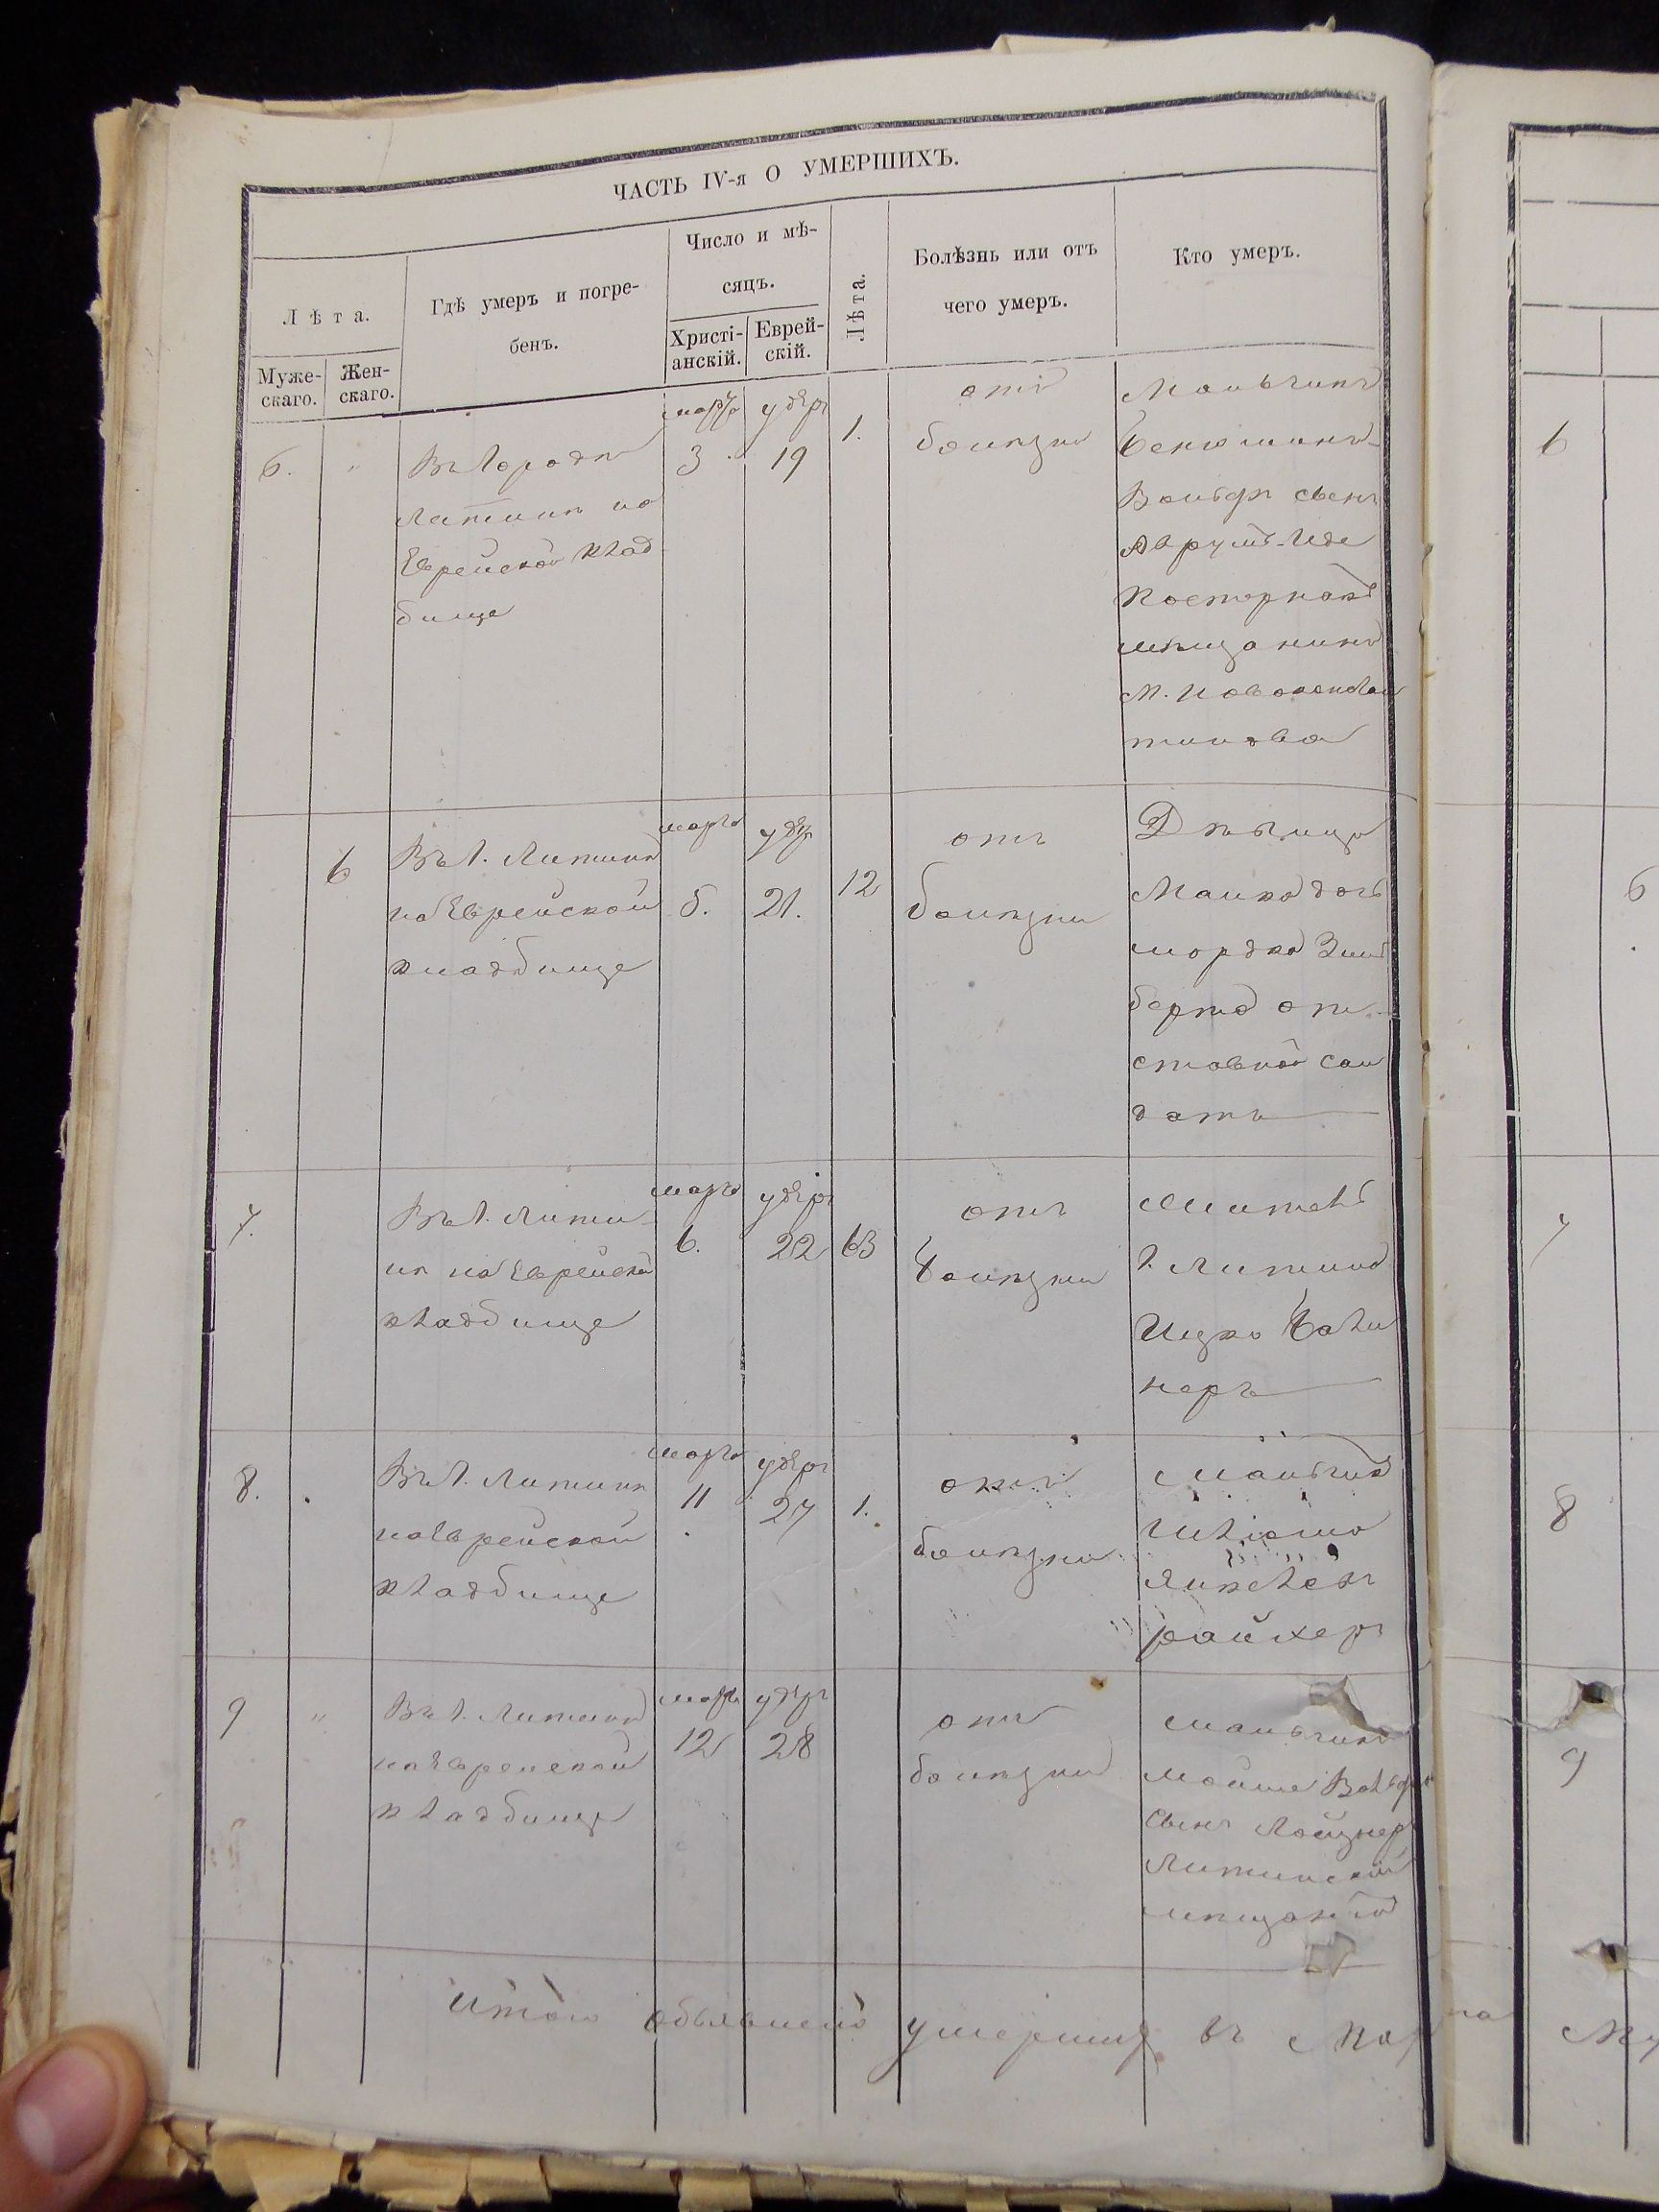 ЧАСТЬ IV-я О УМЕРШИХЪ.
Лѣта.
Муже-
скаго.
Жен-
скаго.
Гдѣ умеръ и погре-
бенъ.
Число и мѣ-
сяцъ.
Христі-
анскій.
Еврей-
скій.
Лѣта.
Болѣзнь или отъ
чего умеръ.
Кто умеръ.
6.
"
Въ Городѣ
Литинѣ на
Еврейской клад
бище
марта
3
удеръ
19
1.
отъ
болѣзни
Мальчикъ
Бенюминъ-
Вольфъ сынъ
Аврумъ-Иде
Пастернакъ
мѣщанинъ
М. Новоконстан
тинова
6
Въ Г. Литинѣ
на Еврейской
кладбище
марта
5.
удеръ
21.
12
отъ
болѣзни
Дѣвица
Малка дочь
Мордко Зиль
берта от
ставной сол
датъ
7.
Въ Г. Лити
нѣ на Еврейской
кладбище
марта
6.
удеръ
22
63
отъ
болѣзни
Житель
Г. Литина
Ицко
неръ
8.
Въ Г. Литинѣ
на Еврейской
кладбище
марта
11
удеръ
27
1.
отъ
болѣзни
Мальчикъ
Шлёма
Райхеръ
9
"
Въ Г. Литинѣ
на Еврейской
кладбище
марта
12
удеръ
28
отъ
болѣзни
Мальчикъ
Мойше Вольфъ
сынъ
Литинскій
мѣщанинъ
Итого объявлено умершихъ въ Мар
та
6
6
7
8
9
Му